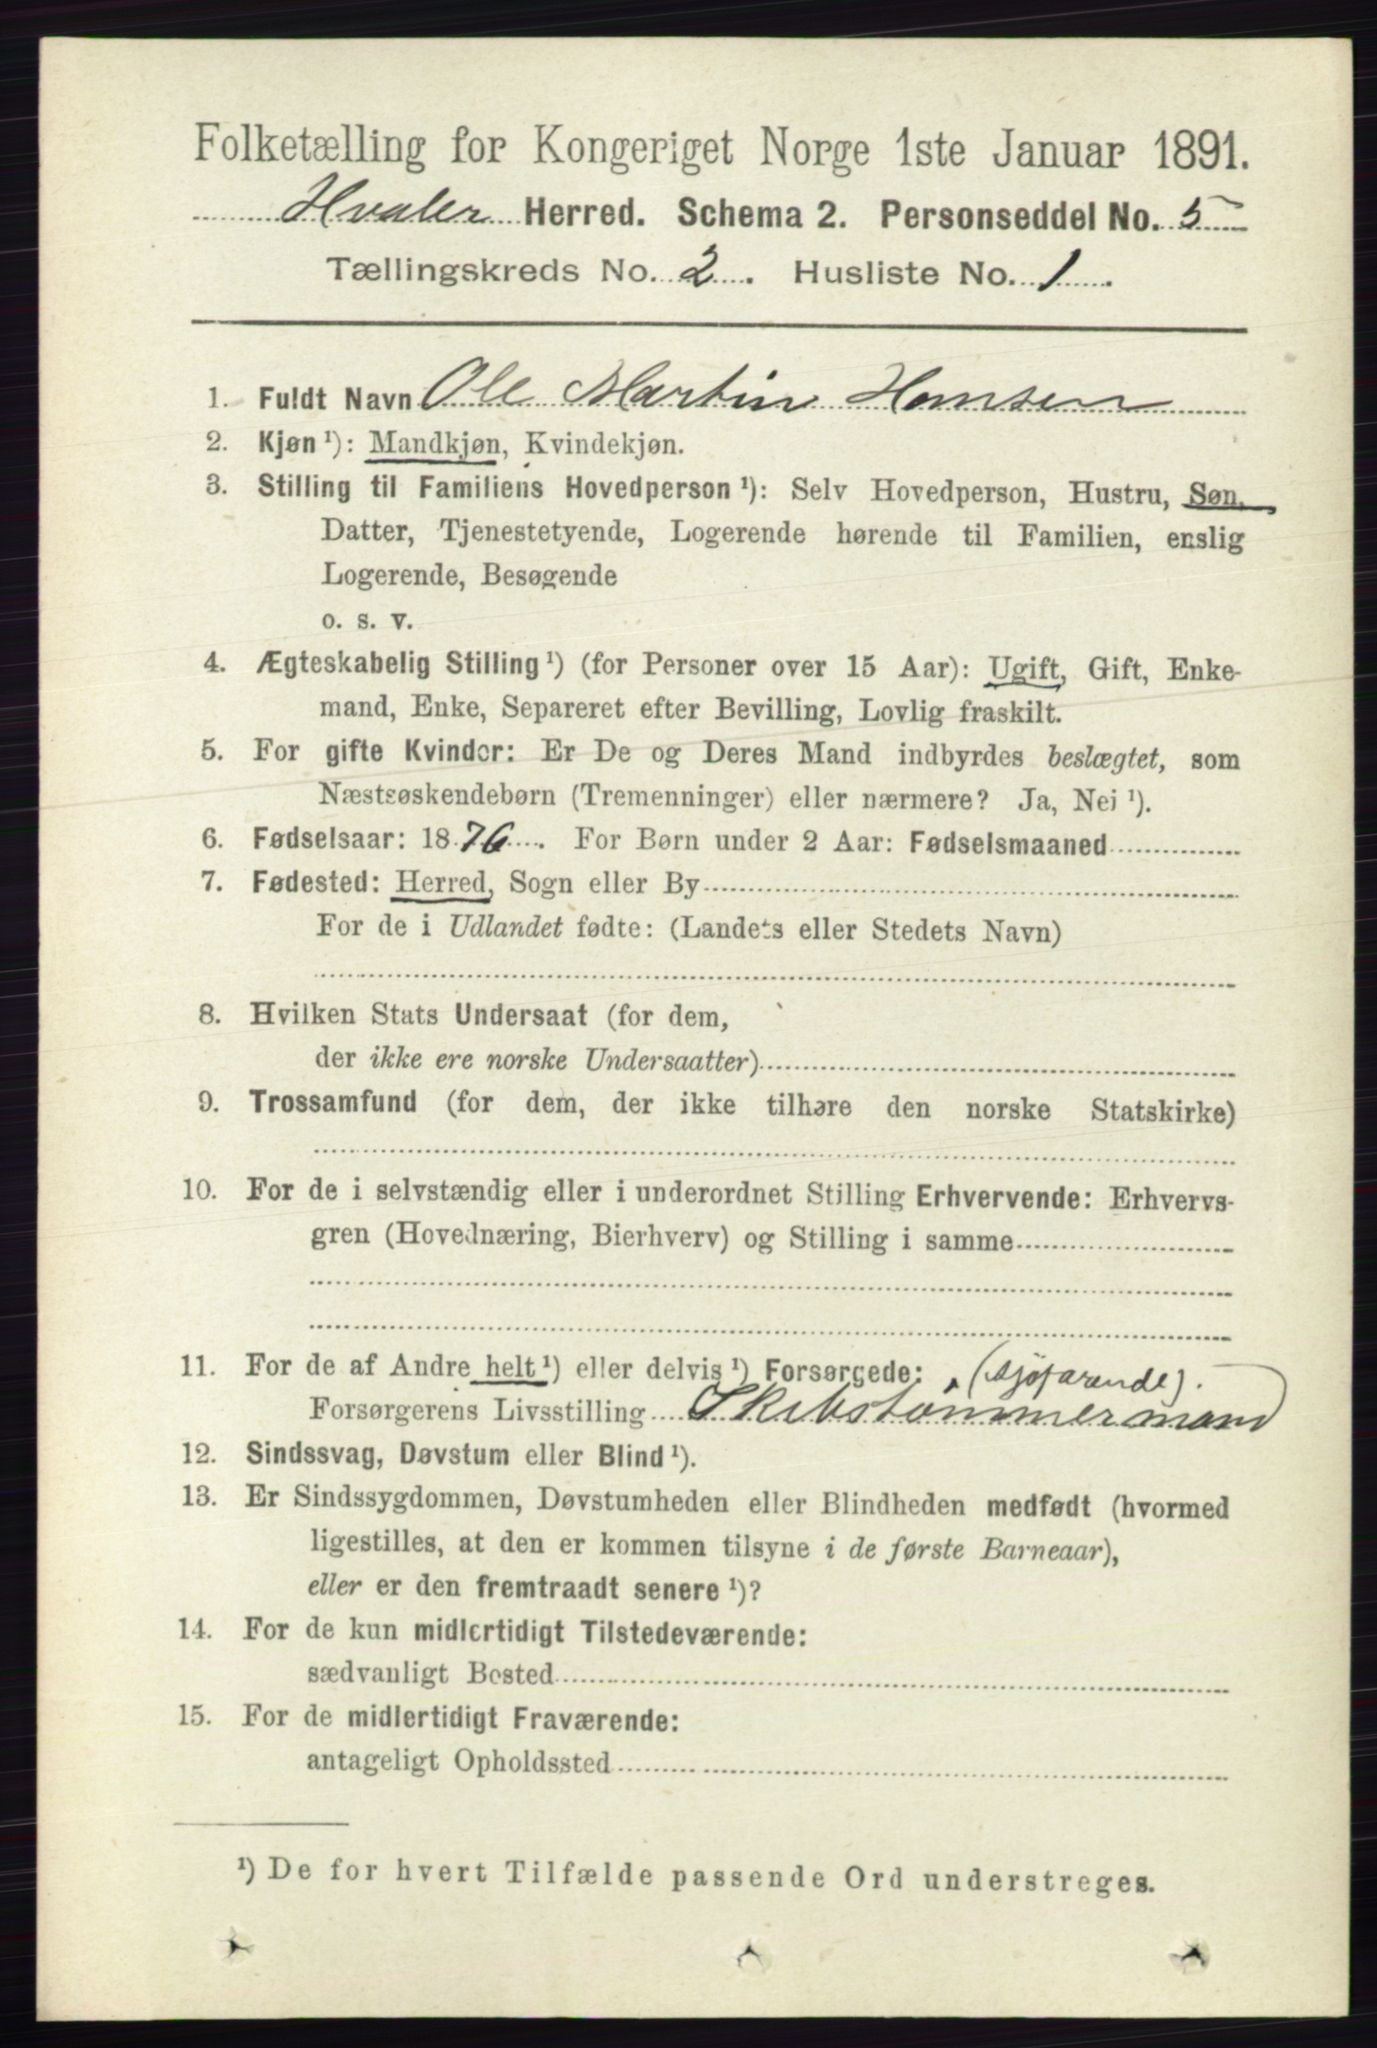 Folketælling for Kongeriget Norge 1ste Januar 1891.
Hvaler Herred. Schema 2. Personseddel No. 5
Tællingskreds No. 2. Husliste No. 1.
1. Fuldt Navn Ole Martin Hansen
2. Kjøn ¹): Mandkjøn, Kvindekjøn.
3. Stilling til Familiens Hovedperson ¹): Selv Hovedperson, Hustru, Søn,
Datter, Tjenestetyende, Logerende hørende til Familien, enslig
Logerende, Besøgende
o. s. v.
4. Ægteskabelig Stilling ¹) (for Personer over 15 Aar): Ugift, Gift, Enke-
mand, Enke, Separeret efter Bevilling, Lovlig fraskilt.
5. For gifte Kvinder: Er De og Deres Mand indbyrdes beslægtet, som
Næstsøskendebørn (Tremenninger) eller nærmere? Ja, Nei ¹).
6. Fødselsaar: 1876. For Børn under 2 Aar: Fødselsmaaned
7. Fødested: Herred, Sogn eller By
For de i Udlandet fødte: (Landets eller Stedets Navn)
8. Hvilken Stats Undersaat (for dem,
der ikke ere norske Undersaatter)
9. Trossamfund (for dem, der ikke tilhøre den norske Statskirke)
10. For de i selvstændig eller i underordnet Stilling Erhvervende: Erhvervs-
gren (Hovednæring, Bierhverv) og Stilling i samme
11. For de af Andre helt ¹) eller delvis ¹) Forsørgede: (sjøfarende).
Forsørgerens Livsstilling Skibstømmermand
12. Sindssvag, Døvstum eller Blind ¹).
13. Er Sindssygdommen, Døvstumheden eller Blindheden medfødt (hvormed
ligestilles, at den er kommen tilsyne i de første Barneaar),
eller er den fremtraadt senere ¹)?
14. For de kun midlertidigt Tilstedeværende:
sædvanligt Bosted
15. For de midlertidigt Fraværende:
antageligt Opholdssted
¹) De for hvert Tilfælde passende Ord understreges.